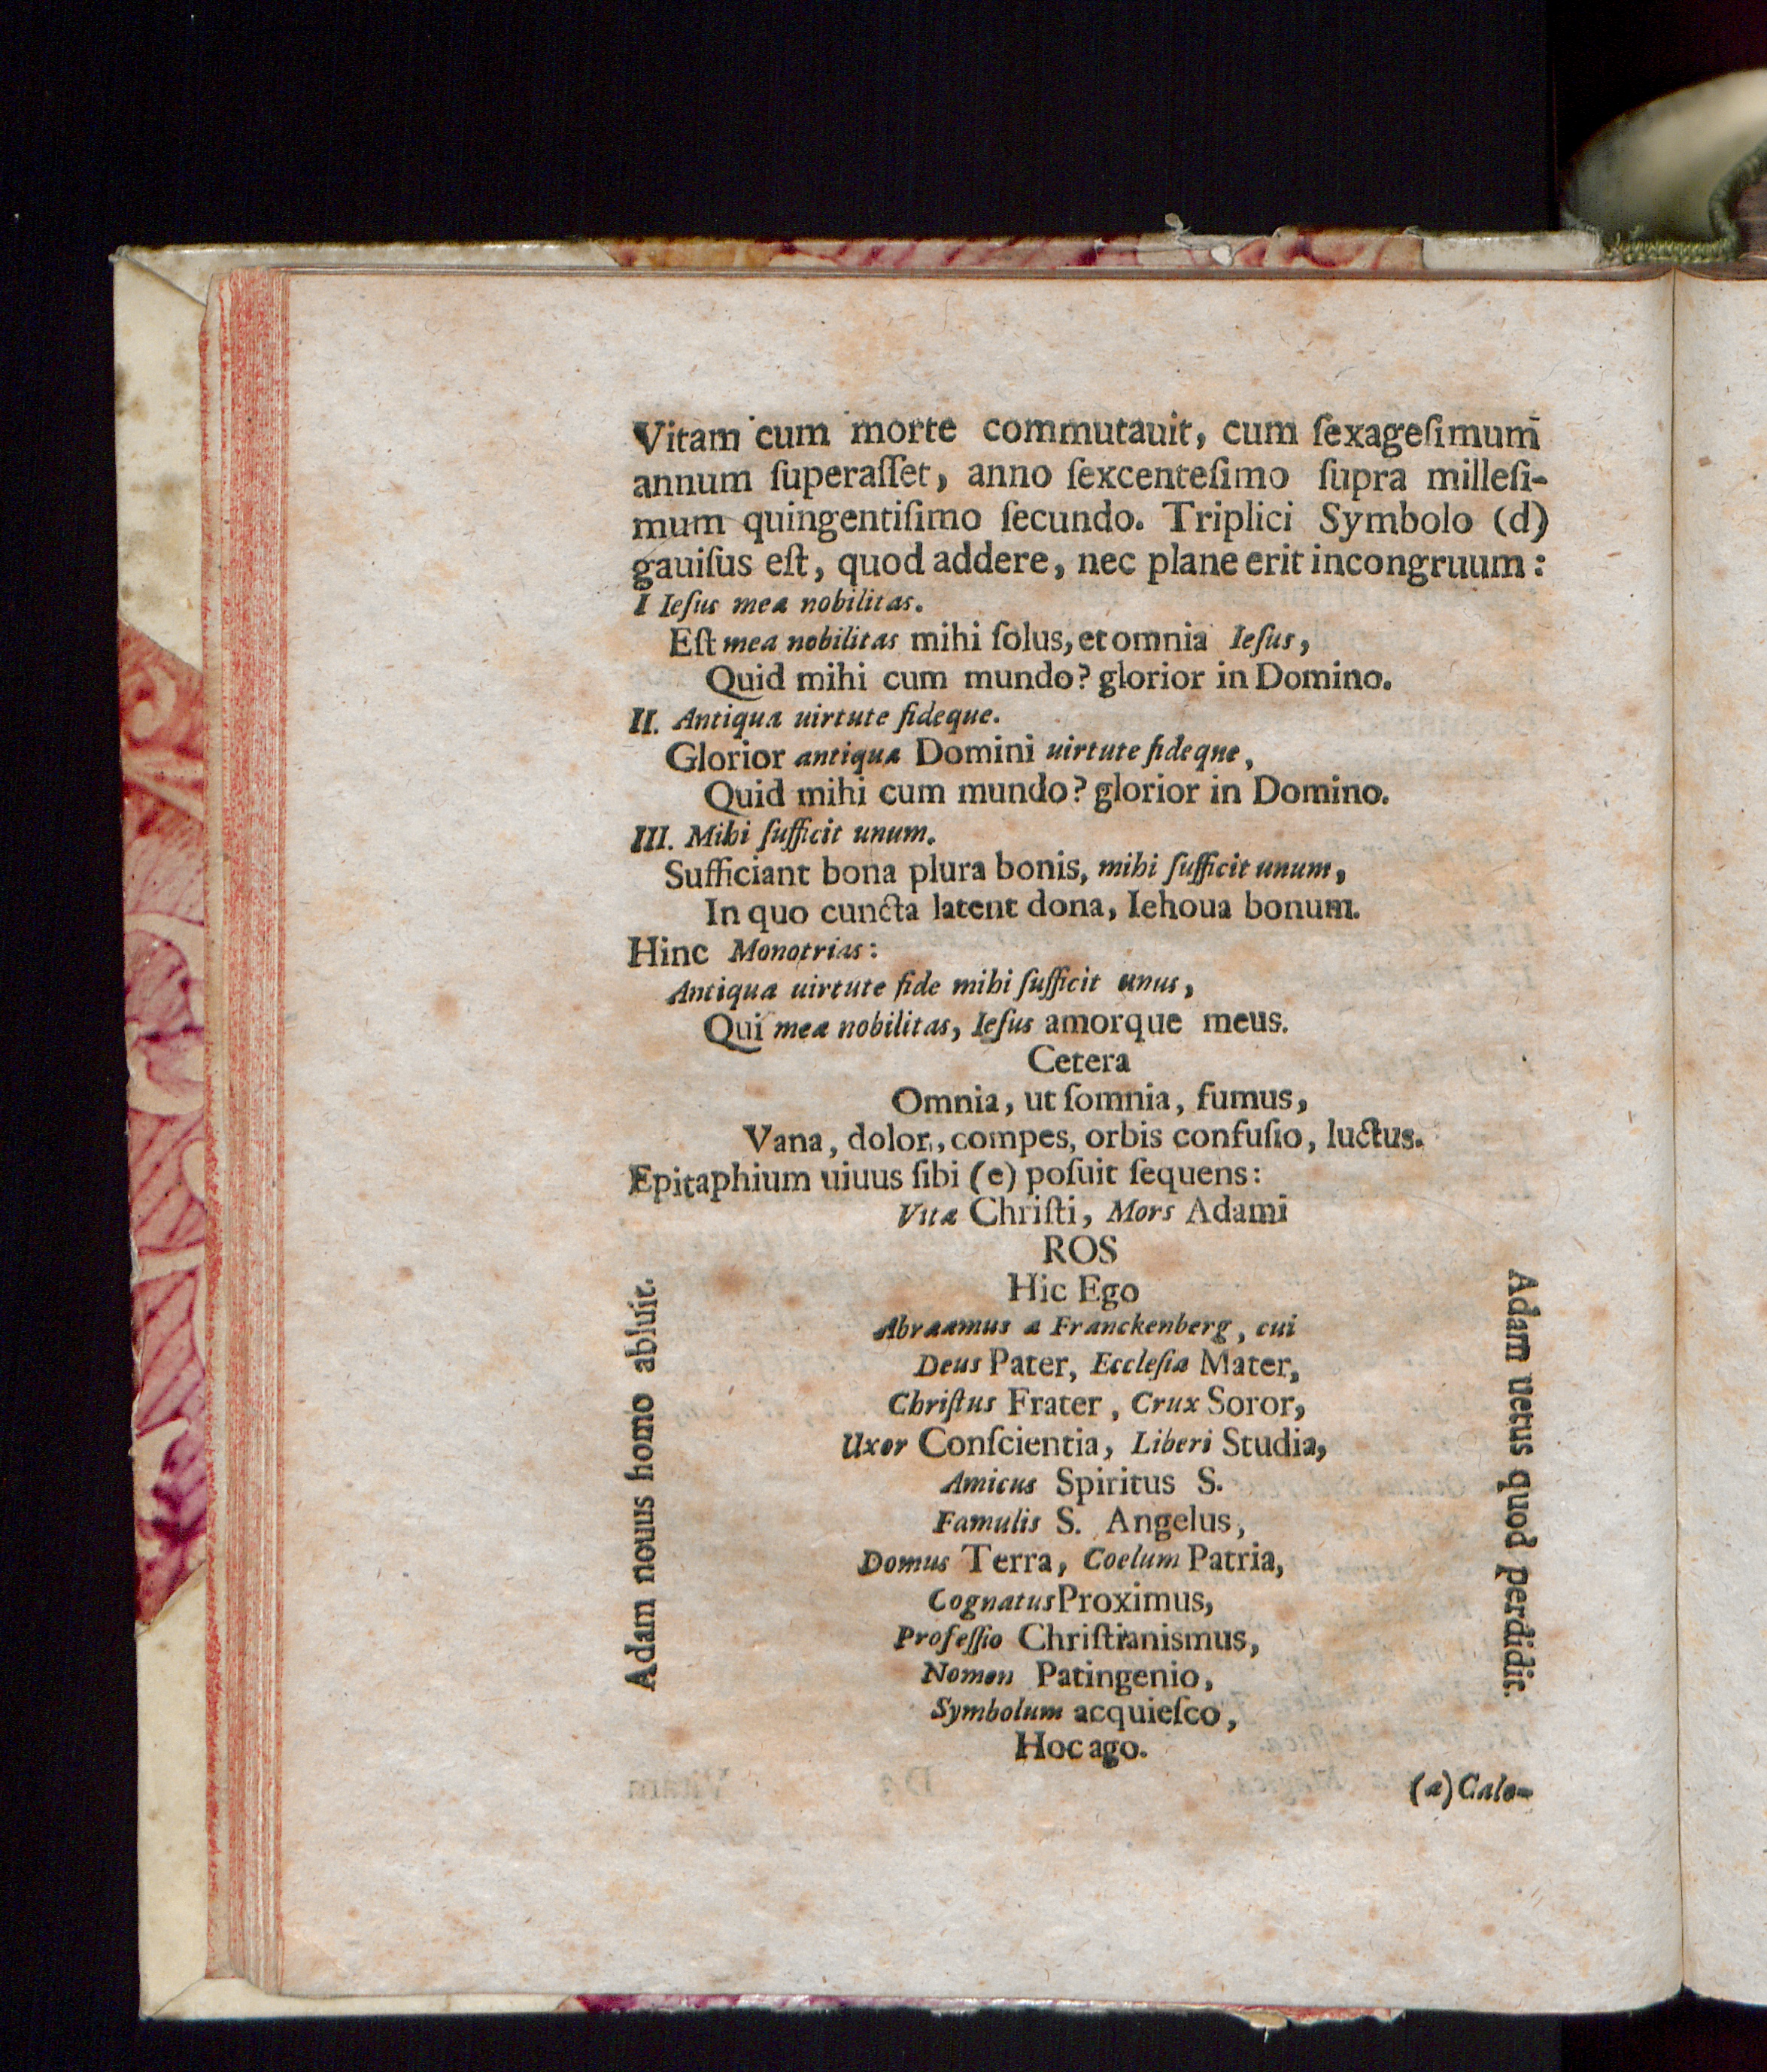 Vitam cum morte commutauit, cum ſexageſimum
annum ſuperaſſet, anno ſexcenteſimo ſupra milleſi-
mum quingentiſimo ſecundo. Triplici Symbolo (d)
gauiſus eſt, quod addere, nec plane erit incongruum:
I Ieſus mea nobilitas.
Eſt mea nobilitas mihi ſolus, et omnia Ieſus,
Quid mihi cum mundo? glorior in Domino.
II. Antiqua uirtute fideque.
Glorior antiqua Domini uirtute fideqne,
Quid mihi cum mundo? glorior in Domino.
III. Mihi ſufficit unum.
Sufficiant bona plura bonis, mihi ſufficit unum,
In quo cuncta latent dona, Iehoua bonum.
Hinc Monotrias:
Antiqua uirtute fide mihi ſufficit unus,
Qui mea nobilitas, Ieſus amorque meus.
Cetera
Omnia, ut ſomnia, fumus,
Vana, dolor, compes, orbis confuſio, luctus.
Epitaphium uiuus ſibi (e) poſuit ſequens:
Vita Chriſti, Mors Adami
ROS
Hic Ego
Abraamus a Franckenberg, cui
Deus Pater, Eccleſia Mater,
Chriſtus Frater, Crux Soror,
Uxor Conſcientia, Liberi Studia,
Amicus Spiritus S.
Famulis S. Angelus,
Domus Terra, Coelum Patria,
Cognatus Proximus,
Profeſſio Chriſtianismus,
Nomen Patingenio,
Symbolum acquieſco,
Hoc ago.
Adam nouus homo abluit.
Adam uetus quod perdidit.
(a) Calo-